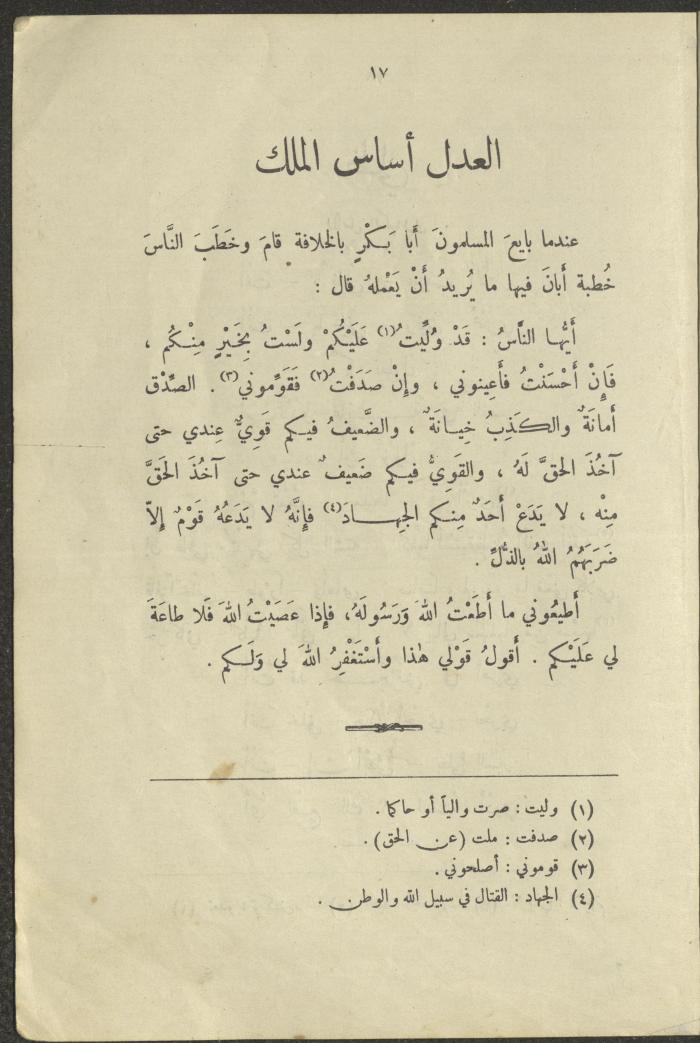 ١٧
العدل أساس الملك
عندما بايعَ المسلمونَ أَبا بَكْرٍ بالخلافة قامَ وخَطَبَ النَّاسَ
خُطبة أَبانَ فيها ما يُريدُ أَنْ يَعْملهُ قال :
أَيُّها النَّاسُ : قَدْ وُلِّيتُ(١) عَلَيْكُمْ ولَسْتُ بِخَيْرٍ مِنْكُم ،
فَإِنْ أَحْسَنْتُ فأَعِينوني ، وإِنْ صَدَفْتُ(٢) فَقَوِّموني(٣) . الصِّدْق
أَمانَةٌ والكَذِبُ خِيانَةٌ ، والضَّعيفُ فيكم قَوِيٌّ عِندي حتى
آخُذَ الحقَّ لَهُ ، والقَوِيُّ فيكم ضَعيفٌ عندي حتى آخُذَ الحَقَّ
مِنْه ، لا يَدَعْ أَحَدٌ مِنكم الجِهادَ(٤) فإِنَّهُ لا يَدَعُهُ قَوْمٌ إِلاّ
ضَرَبَهُمُ اللهُ بالذُّلِّ .
أَطيعُوني ما أَطَعْتُ اللهَ وَرَسُولَهُ، فإِذا عَصَيْتُ اللهَ فَلا طاعَةَ
لي عَلَيْكم . أَقولُ قَوْلي هٰذا وأَسْتَغْفِرُ اللهَ لي وَلَكم .
(١) وليت : صرت والياً أو حاكما .
(٢) صدفت : ملت (عن الحق) .
(٣) قوموني : أصلحوني .
(٤) الجهاد : القتال في سبيل الله والوطن .